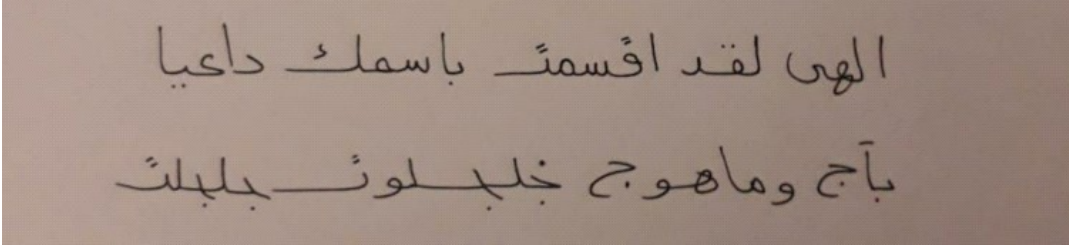 الهى لقد اقسمت باسمك داعيا
بآج وماهوج جلجلوت بلبلت